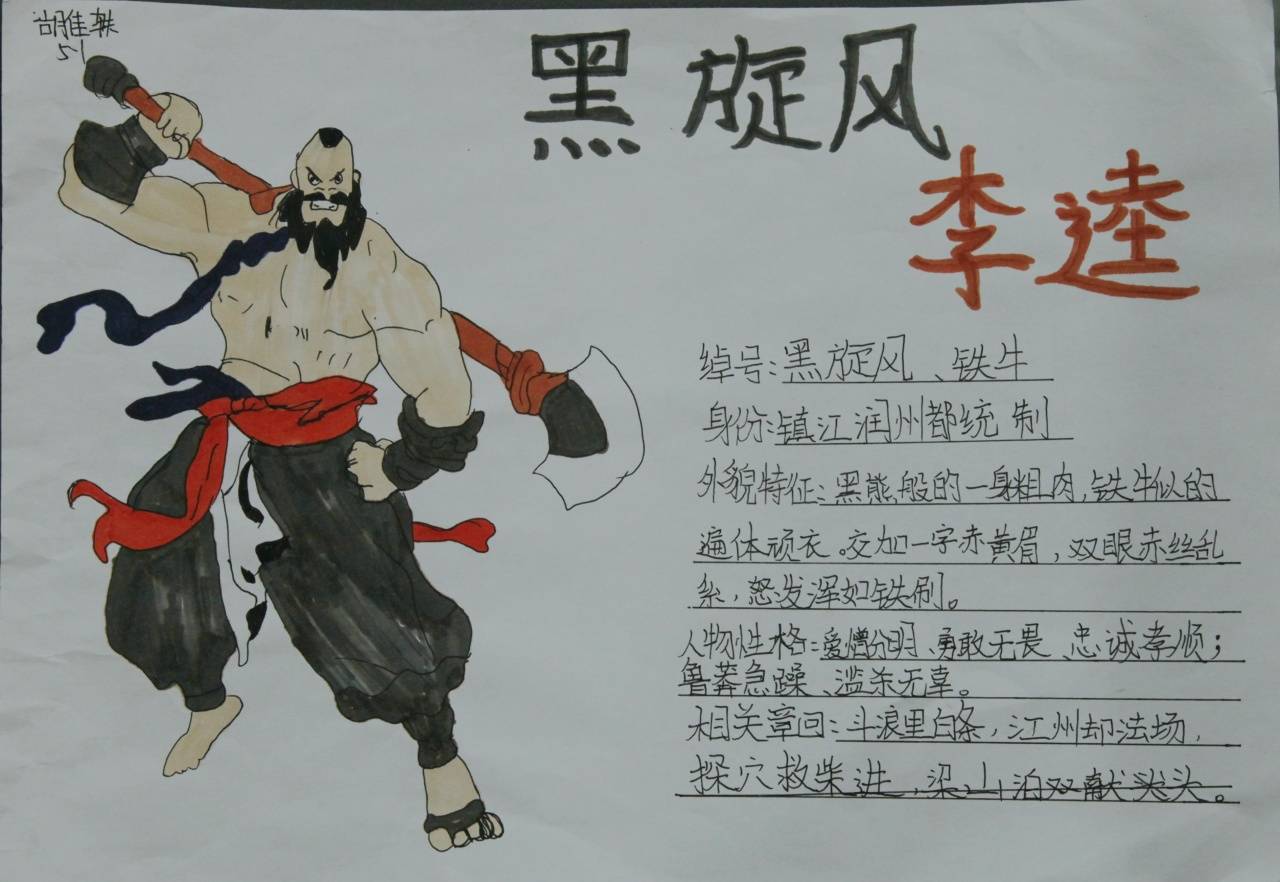 胡雅轶
5.1
黑旋风
李逵
绰号:黑旋风、铁牛
身份:镇江润州都统制
外貌特征:黑熊般的一身粗肉,铁牛似的
遍体顽衣。交加一字赤黄眉,双眼赤丝乱
系,怒发浑如铁刷。
人物性格:爱憎分明、勇敢无畏、忠诚孝顺;
鲁莽急躁、滥杀无辜。
相关章回:斗浪里白条,江州却法场,
探穴救柴进,梁山泊双献头。